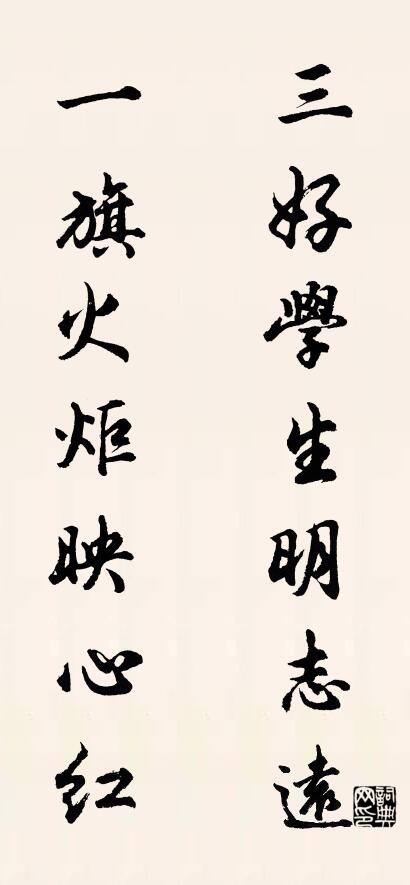 三好學生明志遠
一旗火炬映心红
詞典网印